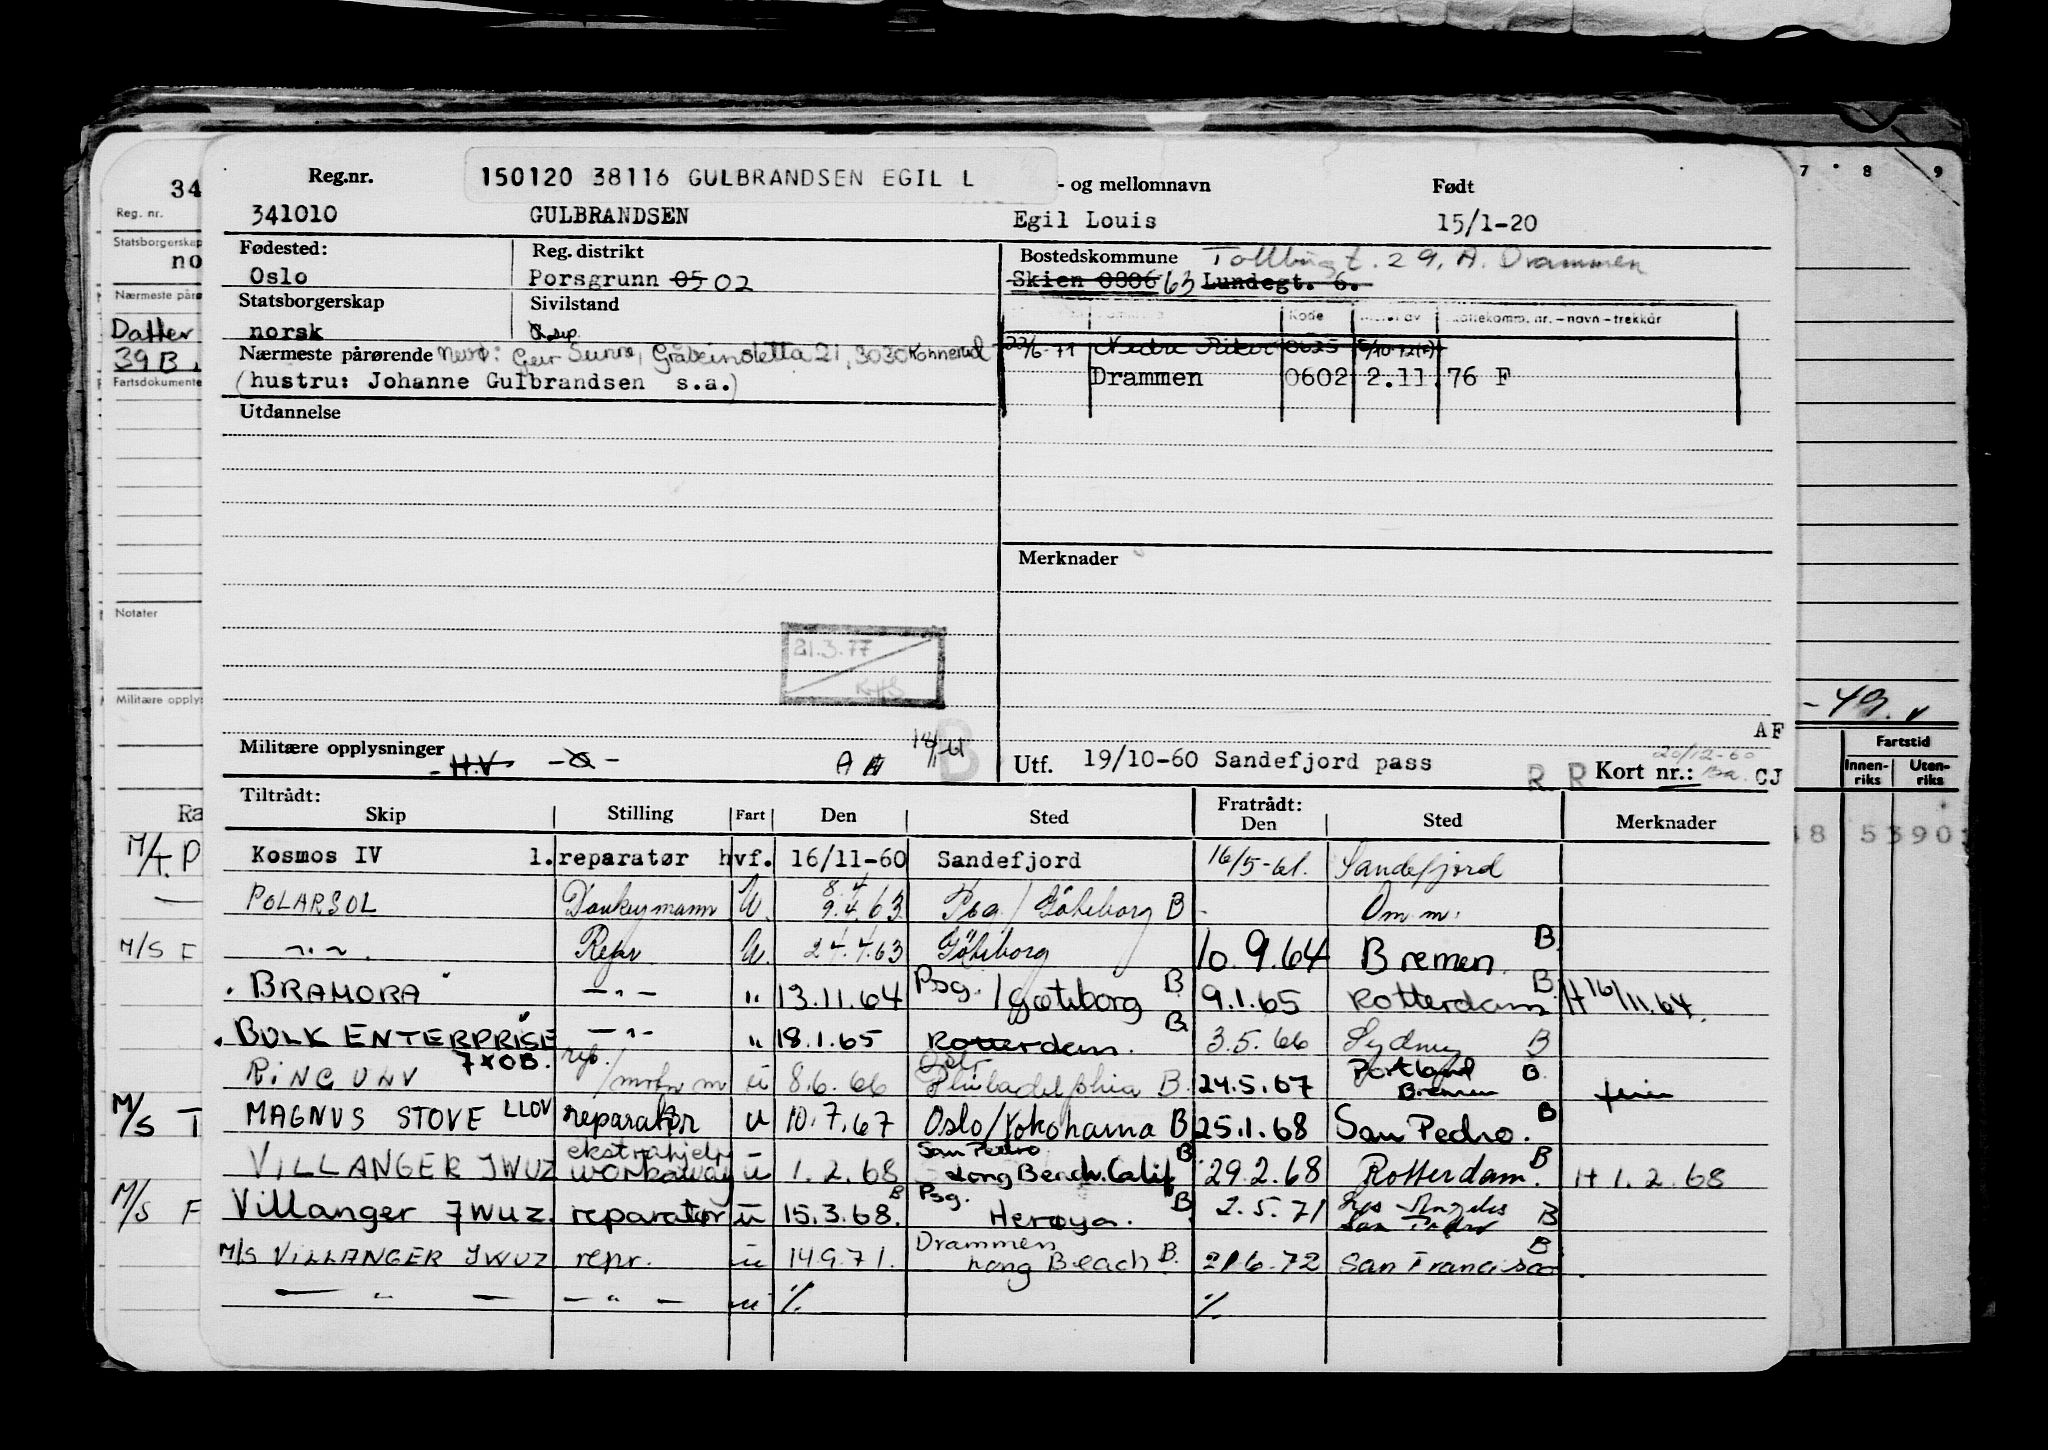 Reg.nr. 150120 38116 GULBRANDSEN EGIL L - og mellomnavn Født
341010 GULBRANDSEN Egil Louis 15/1-20
Fødested: Reg. distrikt Bostedskommune Tollbugt. 29, A. Drammen
Oslo Porsgrunn 05 02 Skien 0806 63 Lundegt. 6.
Statsborgerskap Sivilstand
norsk sep. Kode
Nærmeste pårørende Gråbeinsletta 21, 3030 Konnerud /6-71 Nedre Eiker 0625
(hustru: Johanne Gulbrandsen s.a.) Drammen 0602 2.11.76 F
Utdannelse
Merknader
21.3.77
AF
Militære opplysninger H.V B Utf. 19/10-60 Sandefjord pass R R Kort nr.: 20/12-60 CJ
Tiltrådt: Fratrådt:
Skip Stilling Fart Den Sted Den Sted Merknader
Kosmos IV 1. reparatør hvf. 16/11-60 Sandefjord 16/5-61. Sandefjord
8.4
POLARSOL Donkeymann U. 9.4.63 Psg./Göteborg B - Om m.
- " - Repr U. 24.4.63 Göteborg 10.9.64 Bremen. B
. BRAMORA - " - " 13.11.64 Psg./Gøteborg B 9.1.65 Rotterdam B H 16/11.64.
. BULK ENTERPRISE - " - " 18.1.65 Rotterdam. B 3.5.66 Sydney B
7XOB.
RINGULV rep./motorm u 8.6.66 Oslo Philadelphia B. 24.5.67 Portland Bremen B ferie
MAGNUS STOVE LLOV reparatør u 10.7.67 Oslo/Yokohama B 25.1.68 San Pedro. B
VILLANGER JWUZ ekstrahjelp workaway u 1.2.68 San Pedro Long Beach. Calif B 29.2.68 Rotterdam. B H 1.2.68
Villanger JWUZ. reparatør u 15.3.68. B Psg. Herøya. B 2.5.71 Los Angeles San Pedro B
M/S VILLANGER JWUZ repr. u 14.9.71. Drammen Long Beach B. 21.6.72 San Francisco B
— " — — " — u % %
34
Reg. nr.
Statsborgerskap
no
Nærmeste pårø
Datter
39 B.
Fartsdokumente
Notater
Militære opply
Ra
M/T. P
—
M/S F
M/S T
M/S F
7 8 9
-49.
Fartstid
Innen-riks Uten-riks
48 5390